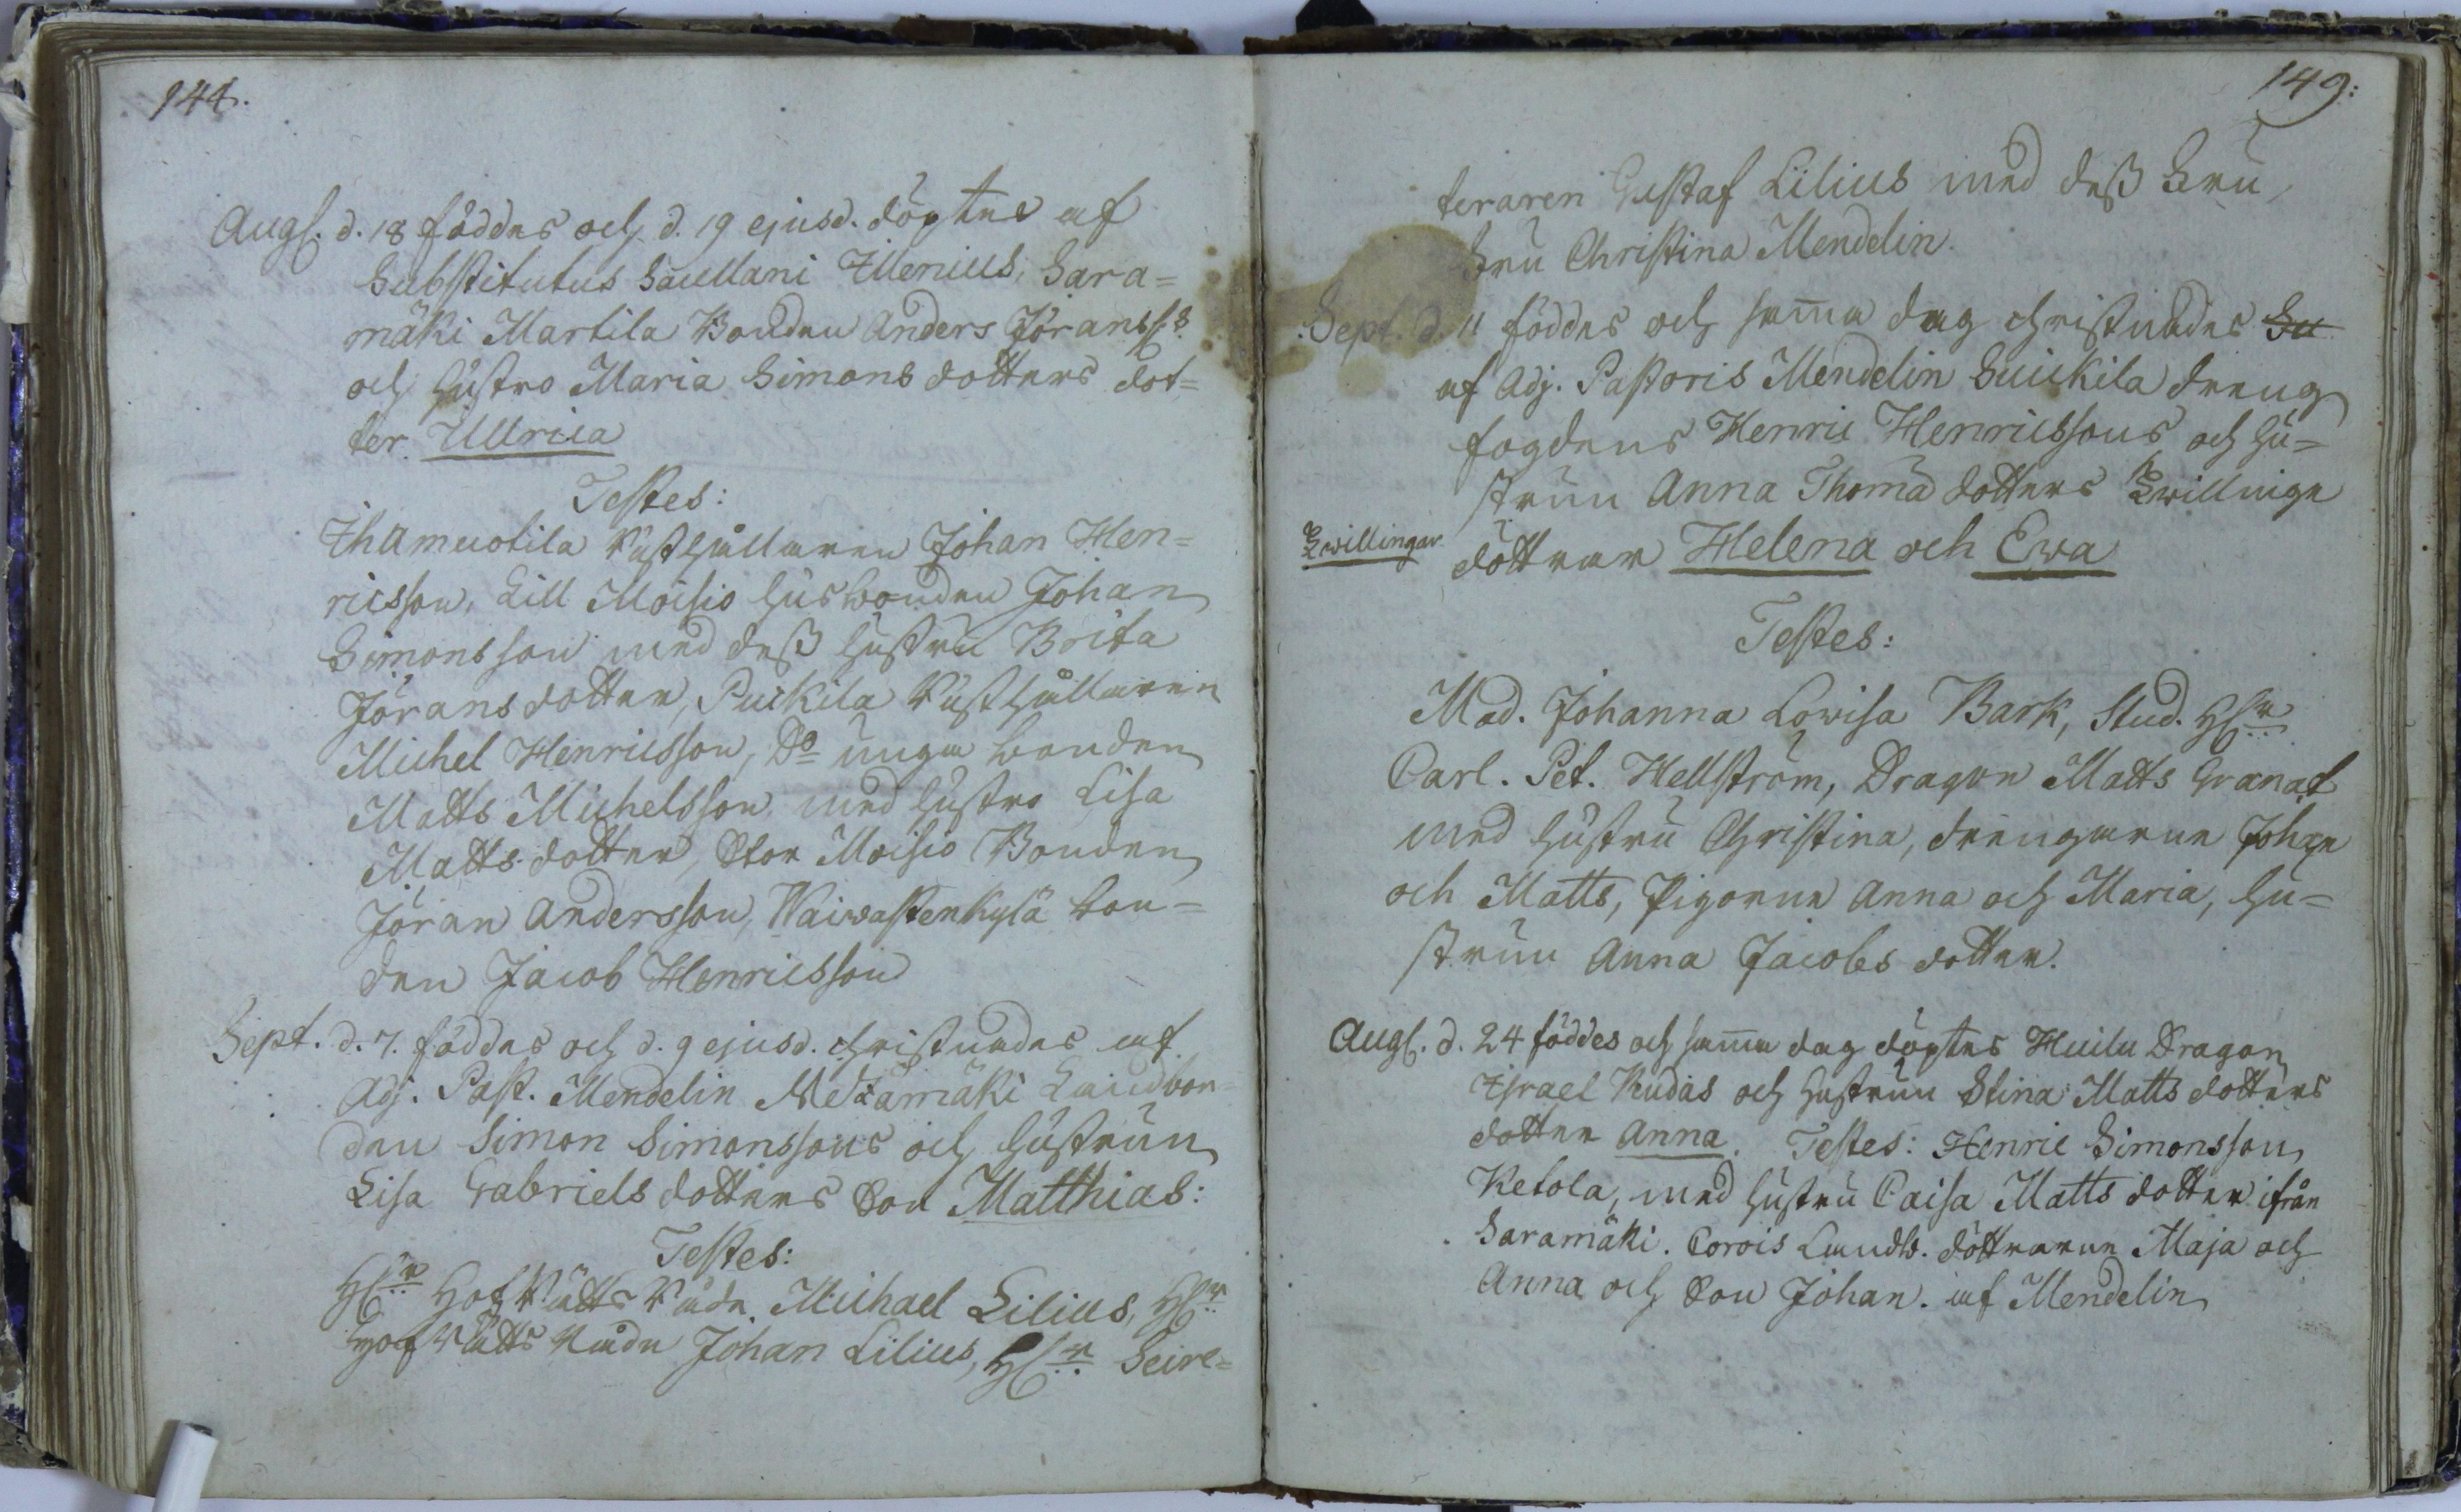 144.
Augs. d. 18 föddes och d. 19 ejusd. döptes af
Substitutus Sacellani Ilenius, Sara=
mäki Martila Bonden Anders Jöranss:s
och hustro Maria Simons dotters dot=
ter Ullrica
Testes:
Ihamuotila Rusthållaren Johan Hen=
ricsson, Lill Moisio husbonden Johan
Simonsson med dess hustru Brita
Jörans dotter, Puckila Rusthållaren
Michel Henricsson, Do unga bonden
Matts Michelsson med hustro Lisa
Matts dotter, Stor Moisio Bonden
Jöran Andersson, Waiwastenkylä bon=
den Jacob Henricsson
Sept. d. 7. föddes och d. 9 ejusd. christnades af
Adj. Past. Mendelin Metzämäki Landbon=
den Simon Simonssons och hustrun
Lisa Gabriels dotters Son Matthias:
Testes:
Hr Hof Rätts Råde Michael Lilius, Hr
Hof Rätts Råde Johan Lilius, Hr Secre=
149:
teraren Gustaf Lilius med dess Fru,
Fru Christina Mendelin.
Sept. d. 11 föddes och samma dag christnades Su
af Adj. Pastoris Mendelin Suickila dreng
fogdens Henric Henricssons och hu=
strun Anna Thomä dotters Zwillinge
Zwillingar
döttrar Helena och Ewa
Testes:
Mad. Johanna Lowisa Bark, Stud. Hr
Carl. Pet. Hellström, Dragon Matts Granat
med hustru Christina, drengarne Johan
och Matts, Pigorne Anna och Maria, hu=
strun Anna Jacobs dotter.
Augs. d. 24 föddes och samma dag döptes Huilu Dragon
Israel Rudas och hustrun Stina Matts dotters
dotter Anna. Testes: Henric Simonsson
Ketola, med hustru Caisa Matts dotter ifrån
Saramäki. Corois Landb. döttrarne Maja och
Anna och Son Johan. af Mendelin